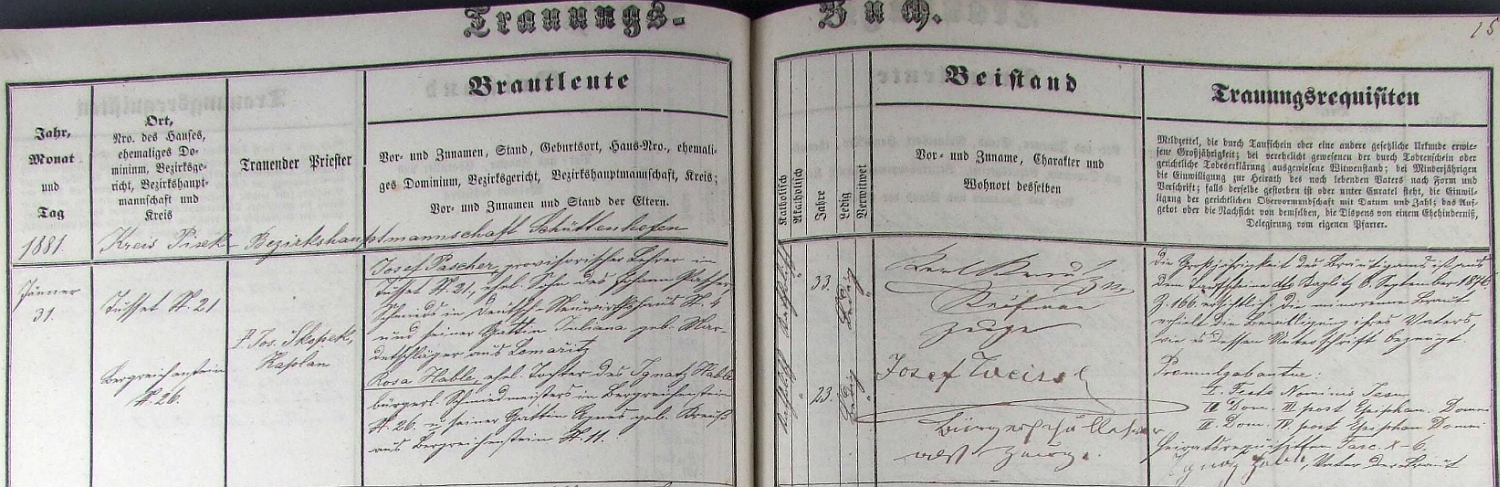 Trauungs-Buch.
15
Jahr, Monat und Tag
Ort, Nro. des Hauses, ehemaliges Dominium, Bezirksgericht, Bezirkshauptmannschaft und Kreis
Trauender Priester
Brautleute
Vor- und Zunamen, Stand, Geburtsort, Haus-Nro., ehemaliges Dominium, Bezirksgericht, Bezirkshauptmannschaft, Kreis;
Vor- und Zunamen und Stand der Eltern.
Katholisch
Akatholisch
Jahre
Ledig
Verwitwet
Beistand
Vor- und Zuname, Charakter und
Wohnort desselben
Trauungsrequisiten
Meldzettel, die durch Taufschein oder eine andere gesetzliche Urkunde erwiesene Großjährigkeit; bei verehelicht gewesenen der durch Todtenschein oder gerichtliche Todeserklärung ausgewiesene Witwenstand; bei Minderjährigen die Einwilligung zur Heirath des noch lebenden Vaters nach Form und Vorschrift; falls derselbe gestorben ist oder unter Curatel steht, die Einwilligung der gerichtlichen Obervormundschaft mit Datum und Zahl; das Aufgebot oder die Nachsicht von demselben, die Dispens von einem Ehehinderniß, Delegirung vom eigenen Pfarrer.
1881 Kreis Pisek - Bezirkshauptmannschaft Schüttenhofen
Jänner
31.
Tusset N. 21
Bergreichenstein
N. 26.
P. Jos. Skopek,
Kaplan
Josef Pascher, provisorischer Lehrer in
Tusset N. 21, ehel. Sohn des Johann
in Deutsch- N. 4
und seiner Gattin Juliana geb.
aus
Rosa Hable, ehel. Tochter des Ignatz Hable
bürgerl. Schmiedmeisters in Bergreichenstein
N. 26. u. seiner Gattin Agnes geb.
aus Bergreichenstein N. 11.
33.
Ledig
23.
Ledig
Karl
Zeuge
Josef Weisel
Bürgerschullehrer
als Zeuge.
Die Großjährigkeit des Bräutigams ist aus
dem Taufscheine 6. September 187
Z. 166 ersichtlich. Die minorenne Braut
erhielt die Bewilligung ihres Vaters,
wie es dessen Unterschrift bezeugt.
I. Festo Nominis Jesu
II Dom. II post Epiphan. Domini
III. Dom. IV post Epiphan Domini
Heiratsrequisiten Fasc. X-6.
Ignaz Hable, Vater der Braut